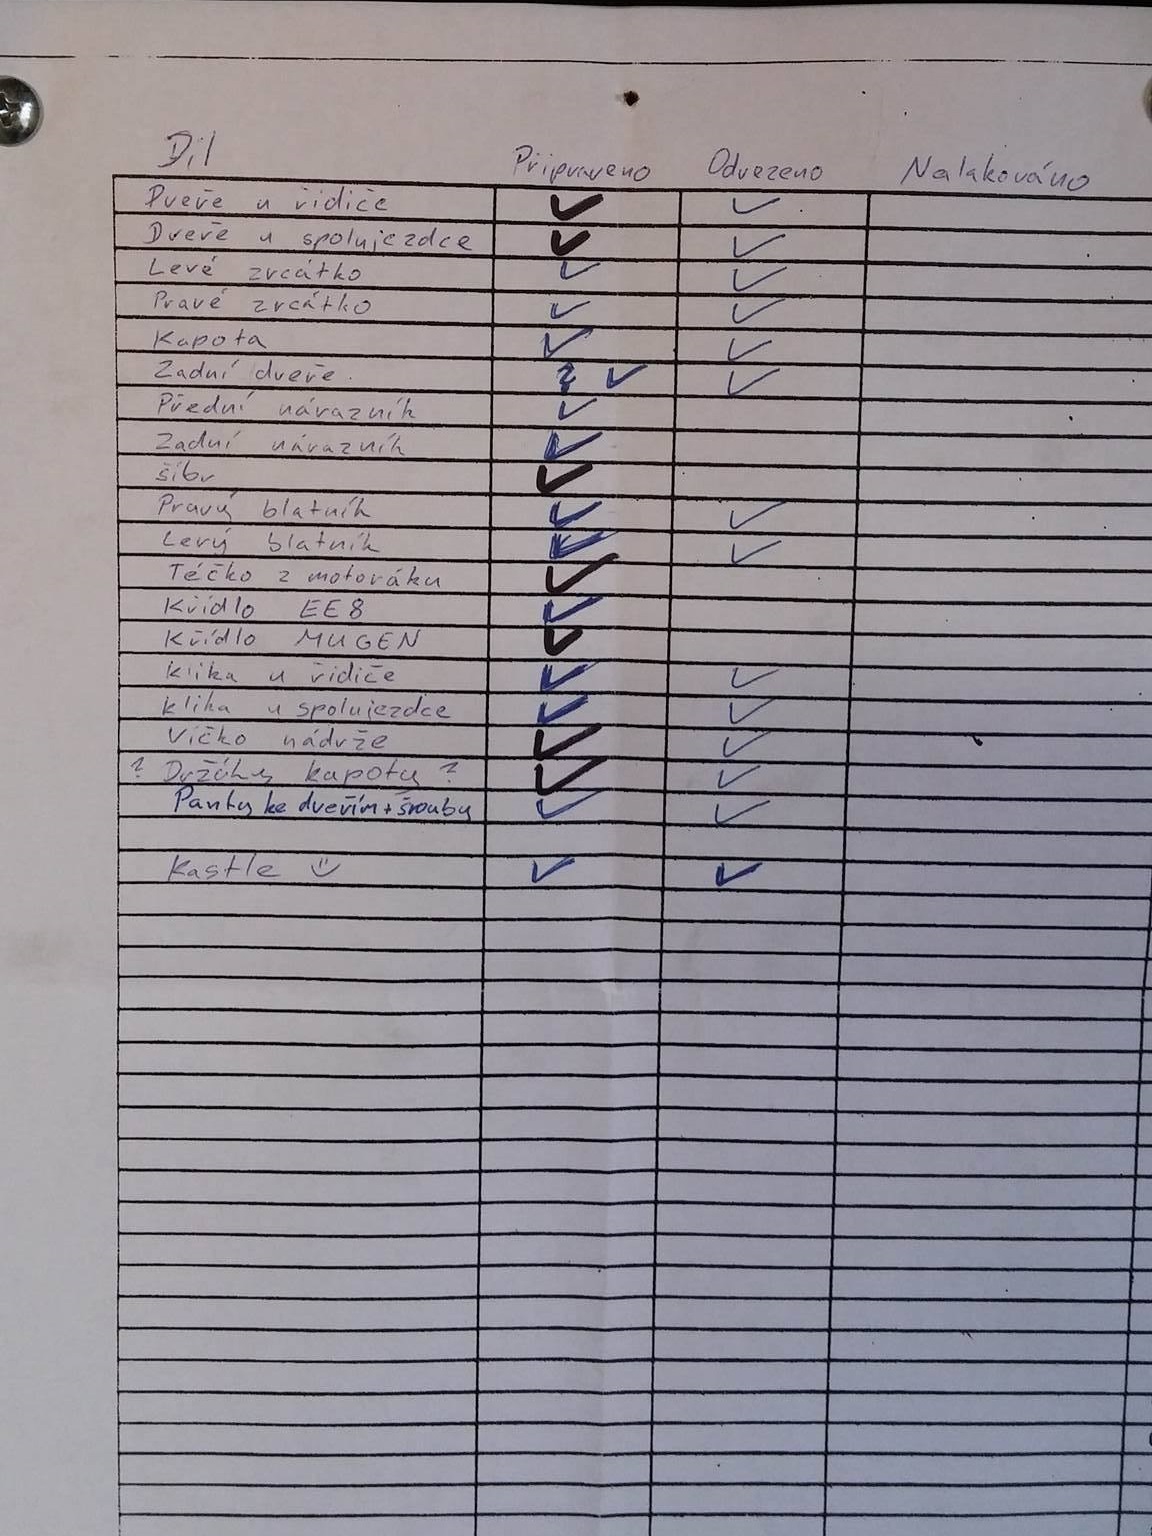 Díl Připraveno Odvezeno Nalakováno
Dveře u řidiče ✓ ✓
Dveře u spolujezdce ✓ ✓
Levé zrcátko ✓ ✓
Pravé zrcátko ✓ ✓
Kapota ✓ ✓
Zadní dveře. ? ✓ ✓
Přední nárazník ✓
Zadní nárazník ✓
šíbr ✓
Pravý blatník ✓ ✓
Levý blatník ✓ ✓
Téčko z motoráku ✓
Křídlo EE8 ✓
Křídlo MUGEN ✓
Klika u řidiče ✓ ✓
Klika u spolujezdce ✓ ✓
Víčko nádrže ✓ ✓
? Držáky kapoty ? ✓ ✓
Panty ke dveřím + šrouby ✓ ✓
Kastle ✓ ✓